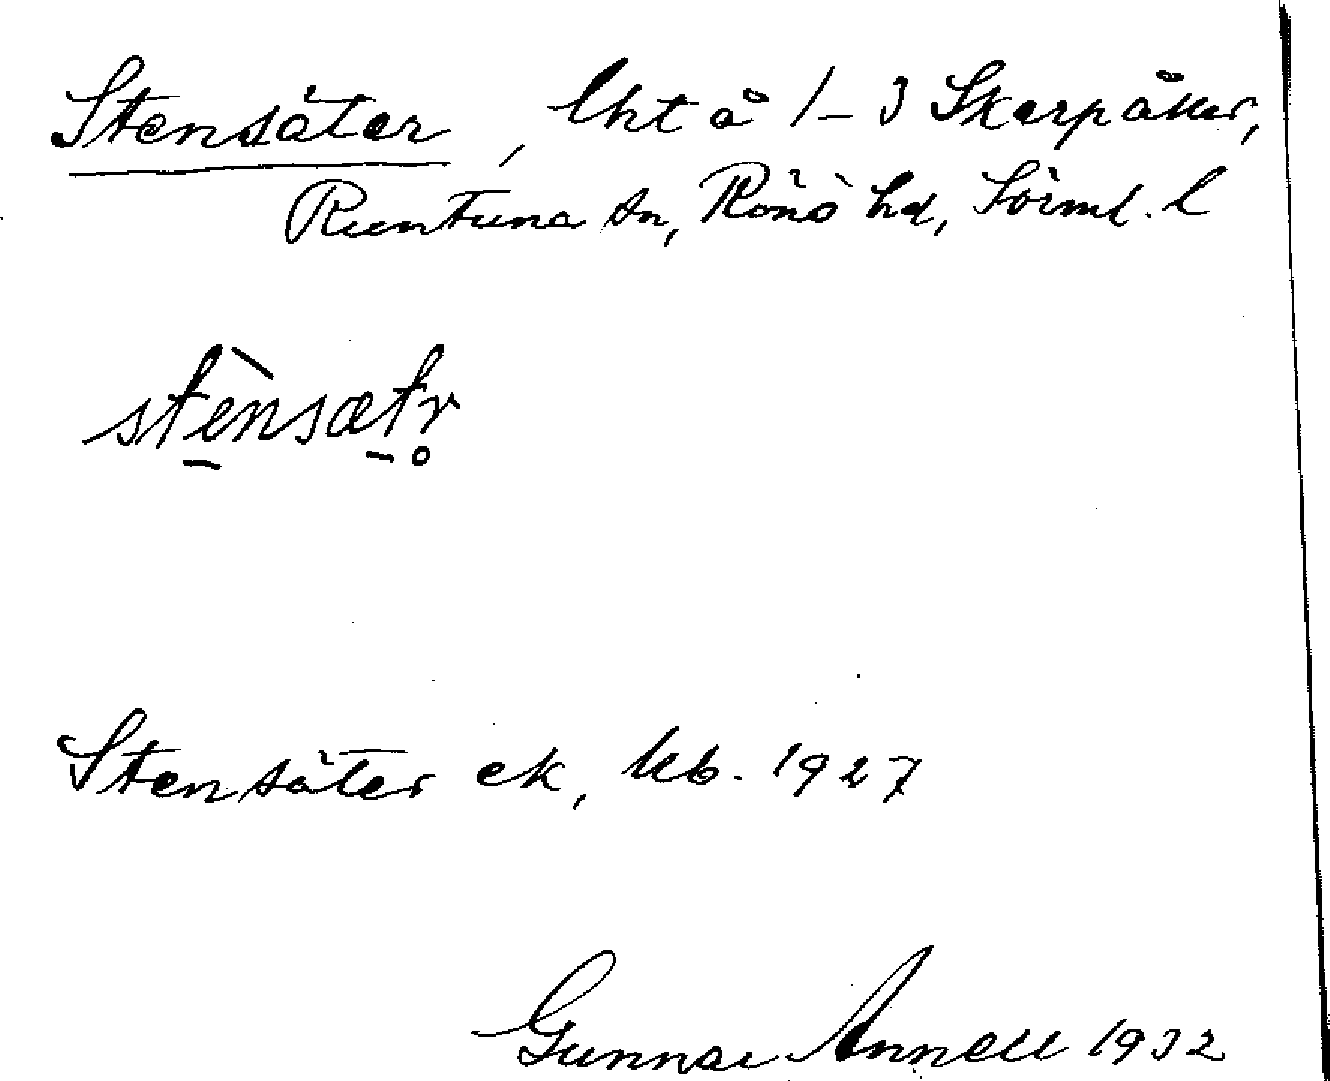 Stensäter, lht å 1-3 Skarpåker,
Runtuna sn, Rönö hd, Sörml. l
stènsætr̥
Stensäter ek, kb. 1927
Gunnar Annell 1932